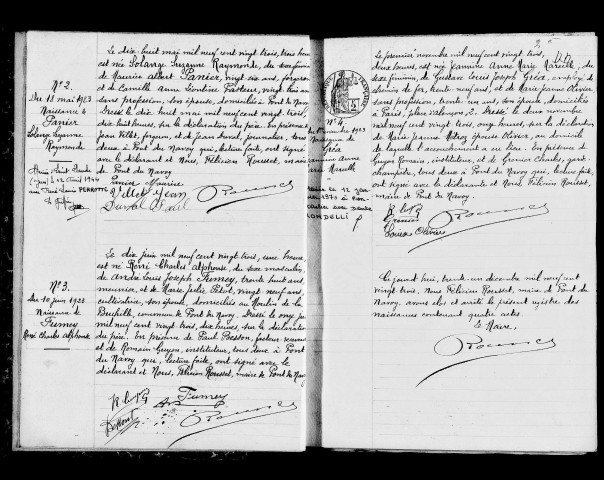 N° 2.
Du 18 mai 1923
Naissance de
Panier
Solange Suzanne
Raymonde
Le dix huit mai mil neuf cent vingt trois, trois heures
est née Solange Suzanne Raymonde, du sexe féminin
de Maurice Albert Panier, vingt six ans, forgeron
et de Camille Anne Léontine Pasteur, vingt trois ans
sans profession, son épouse, domiciliés à Pont du Navoy
Dressé le dix huit mai mil neuf cent vingt trois,
dix huit heures, sur la déclaration du père. En présence de
Jean Villet, forgeron, et de Jean Duval, journalier, tous
deux à Pont du Navoy qui, lecture faite, ont signé avec
le déclarant et Nous, Félicien Rousset, maire
de Pont du Navoy
Panier Maurice
Villet Jean
N° 3.
Du 10 juin 1923
Naissance de
Fumey
René Charles Alphonse
Le dix juin mil neuf cent vingt trois, une heure,
est né René Charles Alphonse, du sexe masculin,
de André Louis Joseph Fumey, trente huit ans,
meunier, et de Marie Julie Pitot, vingt neuf ans,
cultivatrice, son épouse, domiciliés au Moulin de la
commune de Pont du Navoy. Dressé le onze juin
mil neuf cent vingt trois, dix heures, sur la déclaration
du père. En présence de Paul Besson, facteur receveur
et de Romain Guyon, instituteur, tous deux à Pont
du Navoy qui, lecture faite, ont signé avec le
déclarant et Nous, Félicien Rousset, maire de Pont du Navoy
Fumey
2
N° 4.
Du 1er Novembre 1923
Naissance de
Gréa
Jeannine Anne
Marie Marcelle
Le premier novembre mil neuf cent vingt trois,
deux heures, est née Jeannine Anne Marie Marcelle, du
sexe féminin, de Gustave Louis Joseph Gréa, employé de
chemin de fer, trente neuf ans, et de Marie Jeanne Olivier,
sans profession, trente un ans, son épouse, domiciliés
à Paris, place d'Alençon, 2. Dressé le deux novembre
mil neuf cent vingt trois, onze heures, sur la déclaration
de Marie Jeanne épouse Olivier, au domicile
de laquelle l'accouchement a eu lieu. En présence de
Guyon Romain, instituteur, et de Grenier Charles, garde
champêtre, tous deux à Pont du Navoy qui, lecture faite,
ont signé avec la déclarante et Nous, Félicien Rousset,
maire de Pont du Navoy.
Grenier
Louise Olivier
Ce jourd'hui, trente un décembre mil neuf cent
vingt trois, Nous Félicien Rousset, maire de Pont du
Navoy, avons clos et arrêté le présent registre des
naissances contenant quatre actes.
Le Maire,